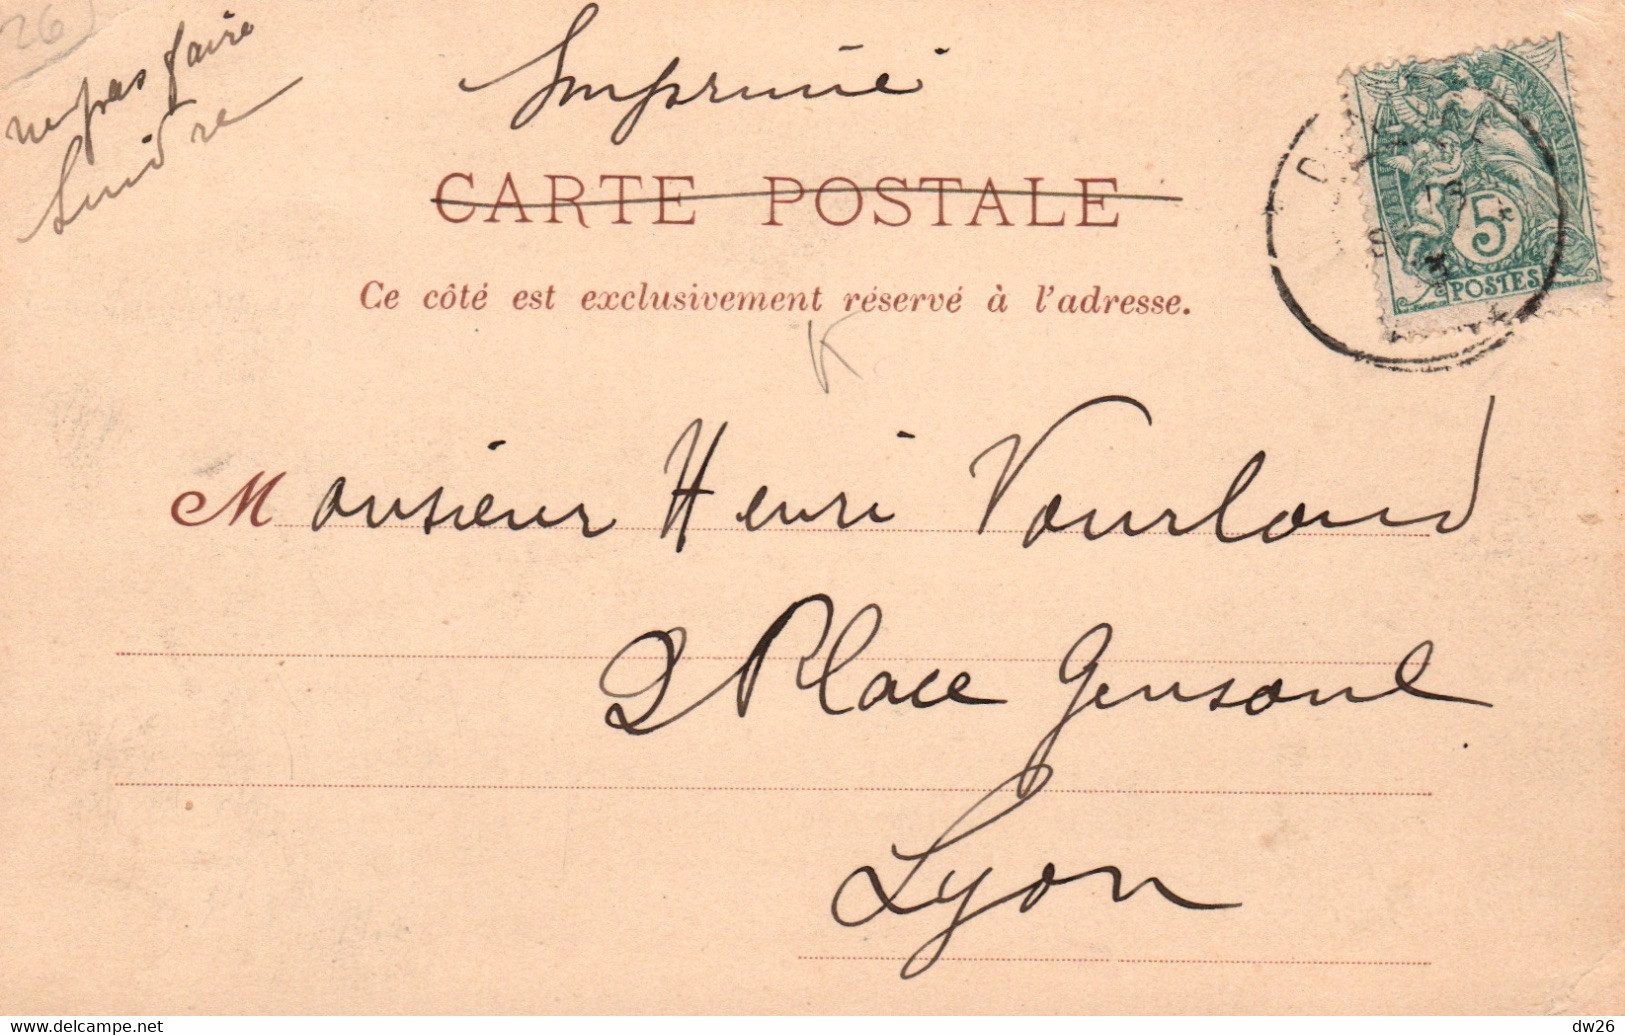 26
ne pas faire
suivre
Imprimé
CARTE POSTALE
Ce côté est exclusivement réservé à l'adresse.
5
POSTES
K
Monsieur Henri Vourloud
2 Place Gensoul
Lyon
www.delcampe.net
dw26